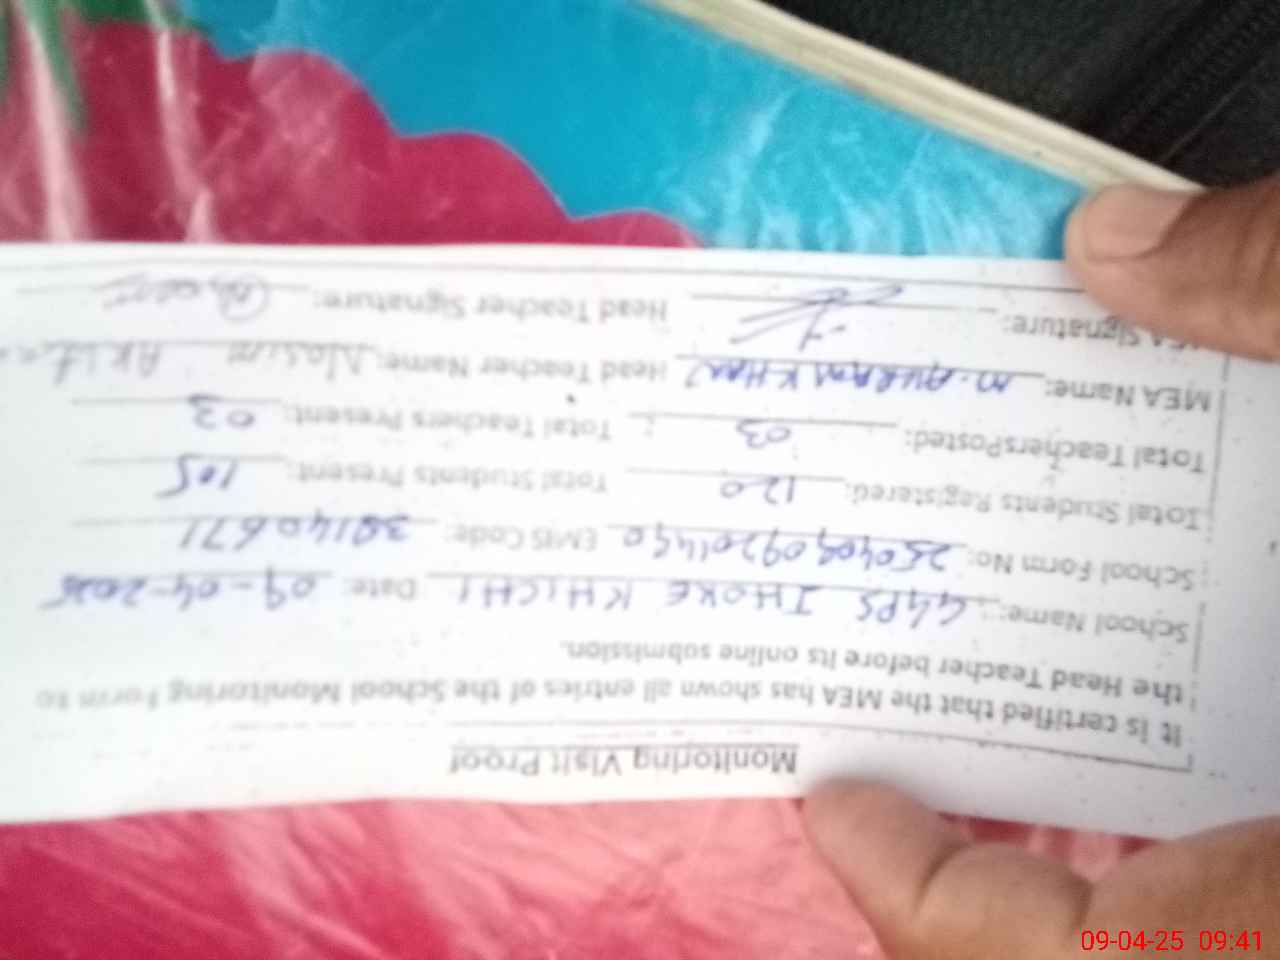 Monitoring Visit Proof
It is certified that the MEA has shown all entries of the School Monitoring Form to
the Head Teacher before its online submission.
School Name: GGPS JHOKE KHICHI Date: 09-04-2025
School Form No: EMIS Code: 38140671
Total Students Registered: 120 Total Students Present: 105
Total TeachersPosted: 03 Total Teachers Present: 03
MEA Name: M. AKRAM KHAN Head Teacher Name:
Signature: Head Teacher Signature:
09-04-25 09:41